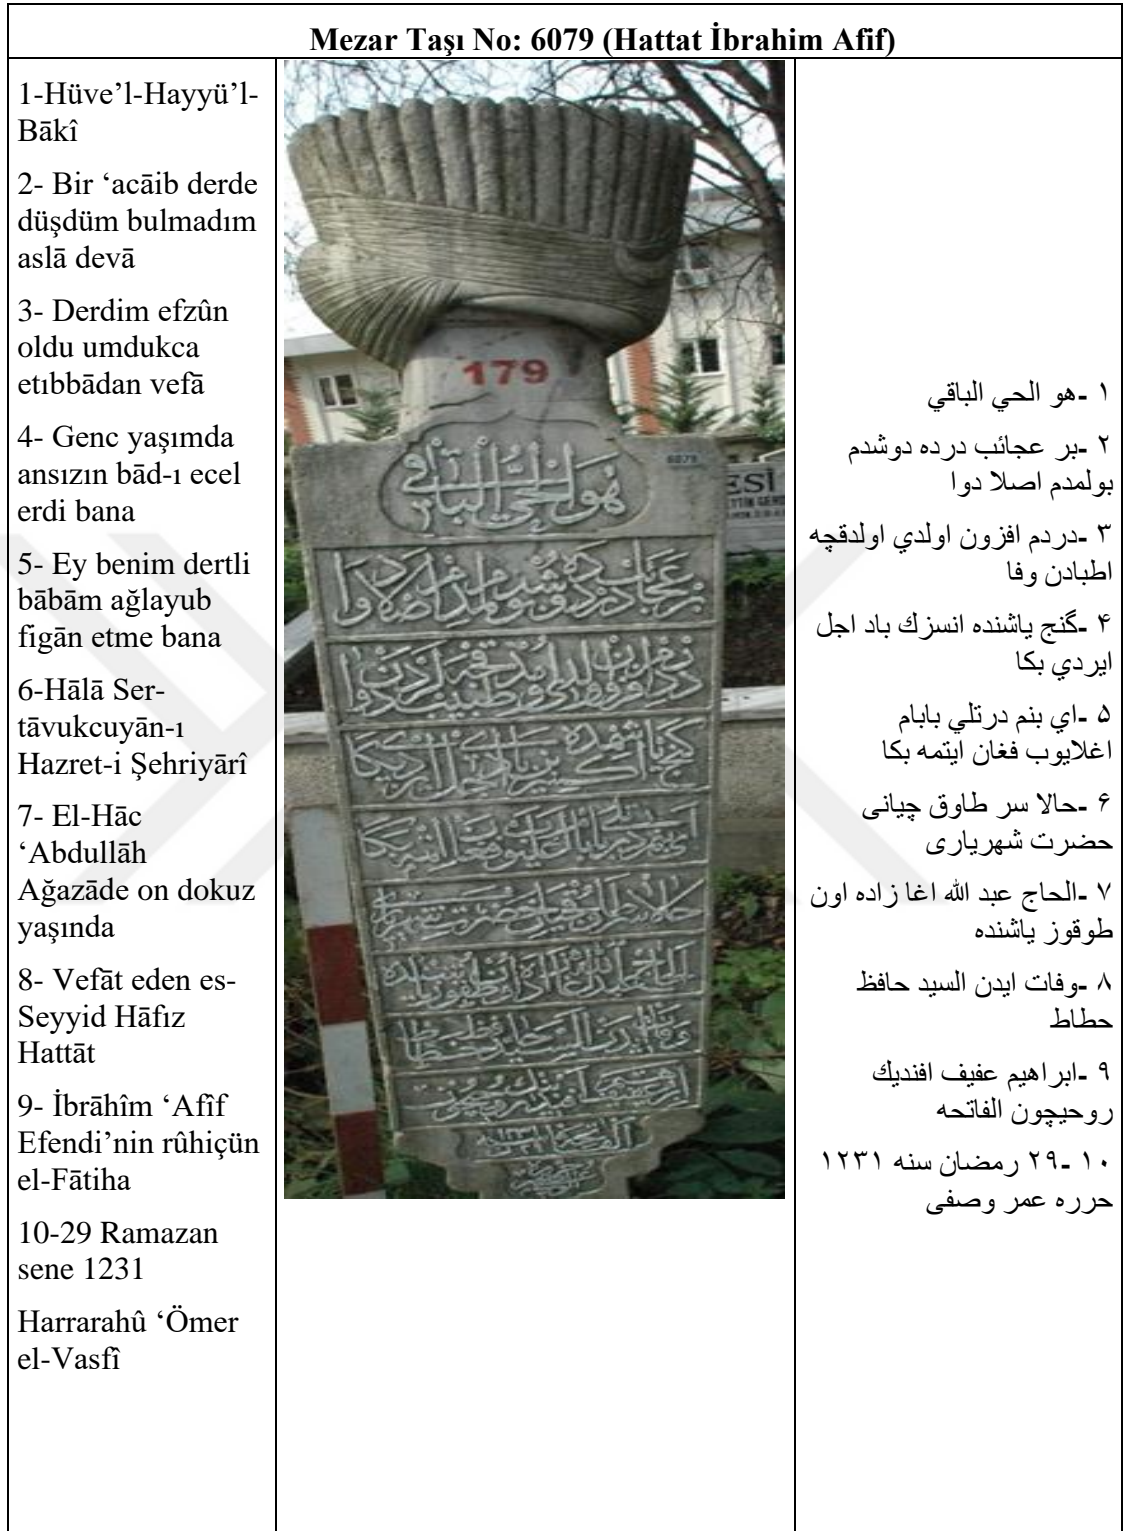 Mezar Taşı No: 6079 (Hattat İbrahim Afif)
1-Hüve’l-Hayyü’l-
Bākî
2- Bir ‘acāib derde
düşdüm bulmadım
aslā devā
3- Derdim efzûn
oldu umdukca
etıbbādan vefā
4- Genc yaşımda
ansızın bād-ı ecel
erdi bana
5- Ey benim dertli
bābām ağlayub
figān etme bana
6-Hālā Ser-
tāvukcuyān-ı
Hazret-i Şehriyārî
7- El-Hāc
‘Abdullāh
Ağazāde on dokuz
yaşında
8- Vefāt eden es-
Seyyid Hāfız
Hattāt
9- İbrāhîm ‘Afîf
Efendi’nin rûhiçün
el-Fātiha
10-29 Ramazan
sene 1231
Harrarahû ‘Ömer
el-Vasfî
179
6079
هو الحي الباقي
١ -هو الحي الباقي
٢ -بر عجائب درده دوشدم
بولمدم اصلا دوا
٣ -دردم افزون اولدي اولدقچه
اطبادن وفا
۴ -گنج ياشنده انسزك باد اجل
ايردي بكا
۵ -اي بنم درتلي بابام
اغلايوب فغان ايتمه بكا
۶ -حالا سر طاوق چيانى
حضرت شهريارى
٧ -الحاج عبد الله اغا زاده اون
طوقوز ياشنده
٨ -وفات ايدن السيد حافظ
حطاط
٩ -ابراهيم عفيف افنديك
روحيچون الفاتحه
١٠ -٢٩ رمضان سنه ١٢٣١
حرره عمر وصفى